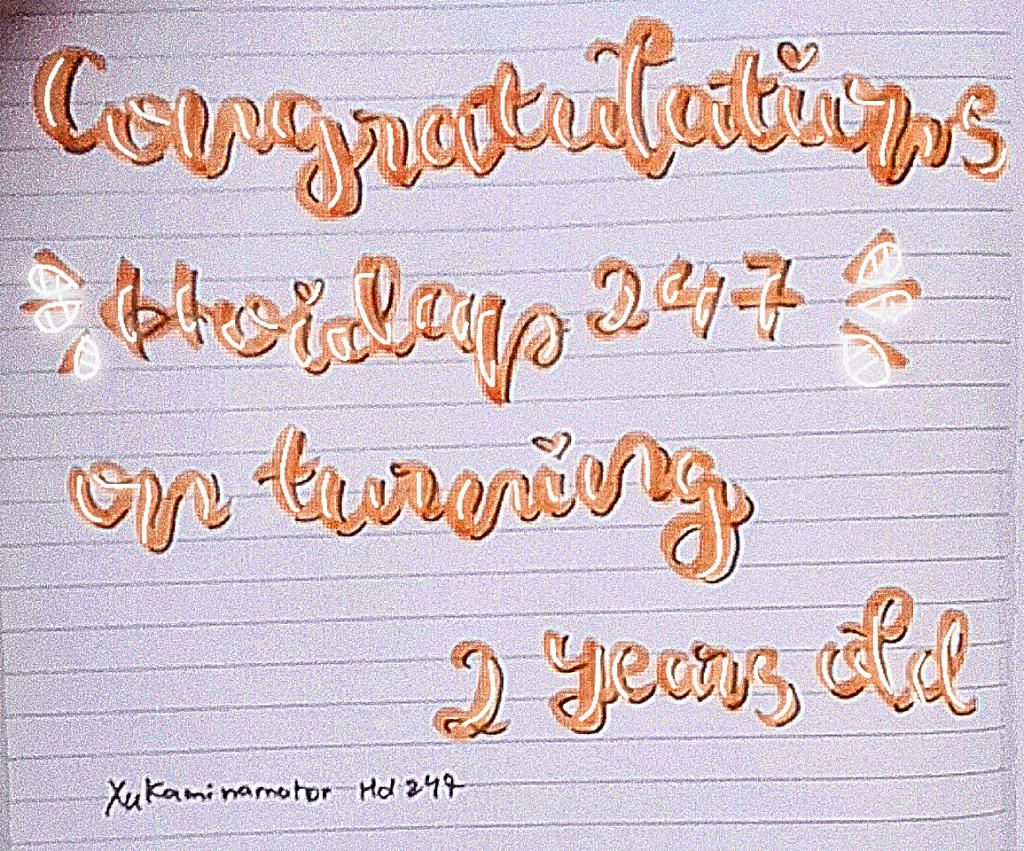 Congratulations
Hoidap 247
on turning
2 years old
XuKaminamator Hd 247